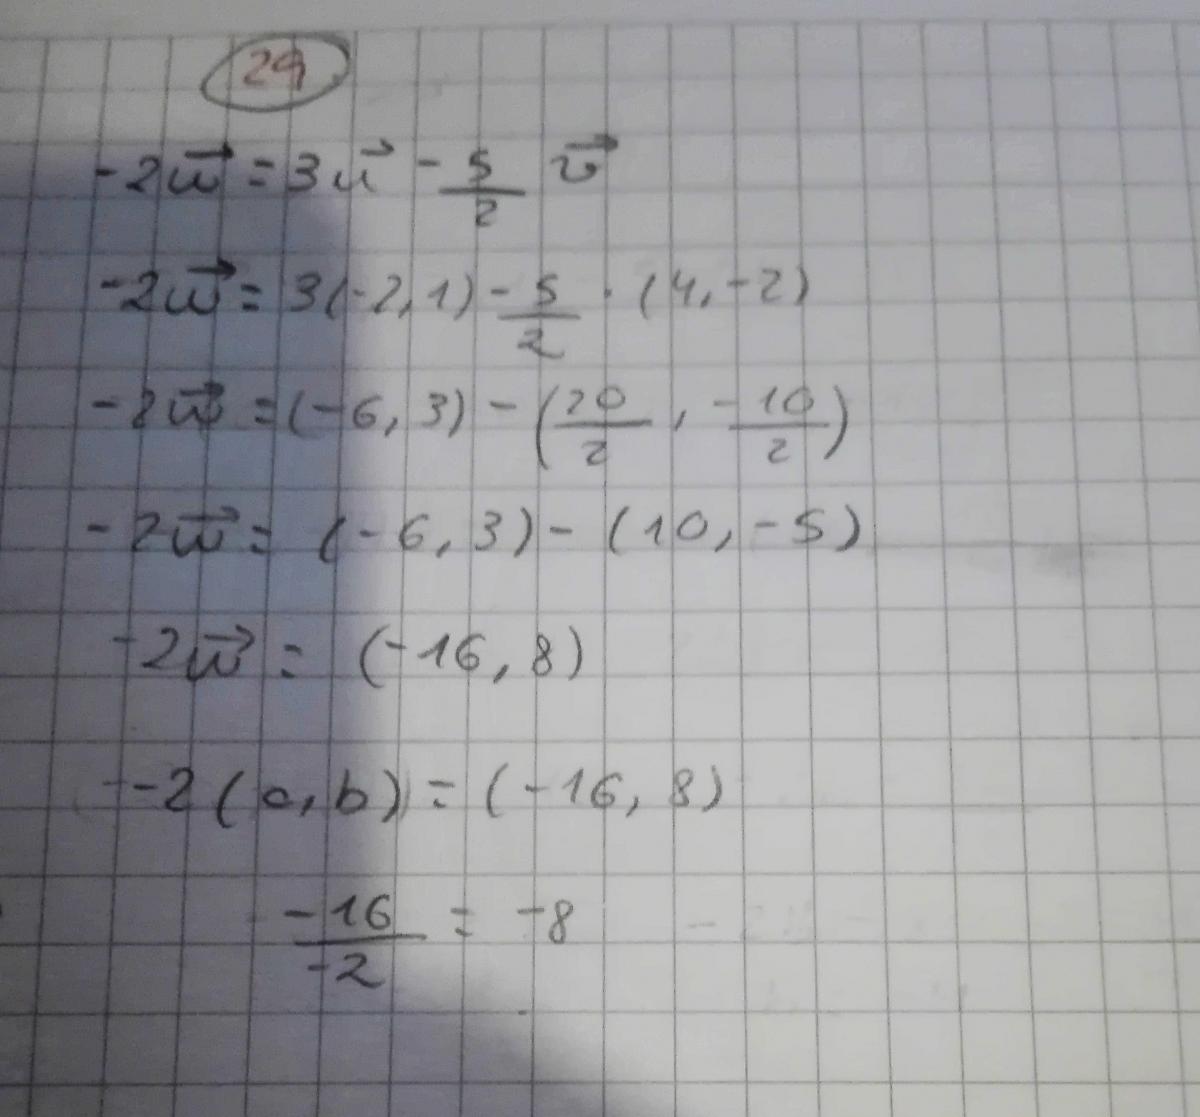 29
-2w⃗ = 3u⃗ - 5/2 v⃗
-2w⃗ = 3(-2,1) - 5/2 · (4,-2)
-2w⃗ = (-6,3) - (20/2, -10/2)
-2w⃗ = (-6,3) - (10,-5)
-2w⃗ = (-16,8)
-2(a,b) = (-16,8)
-16/-2 = -8